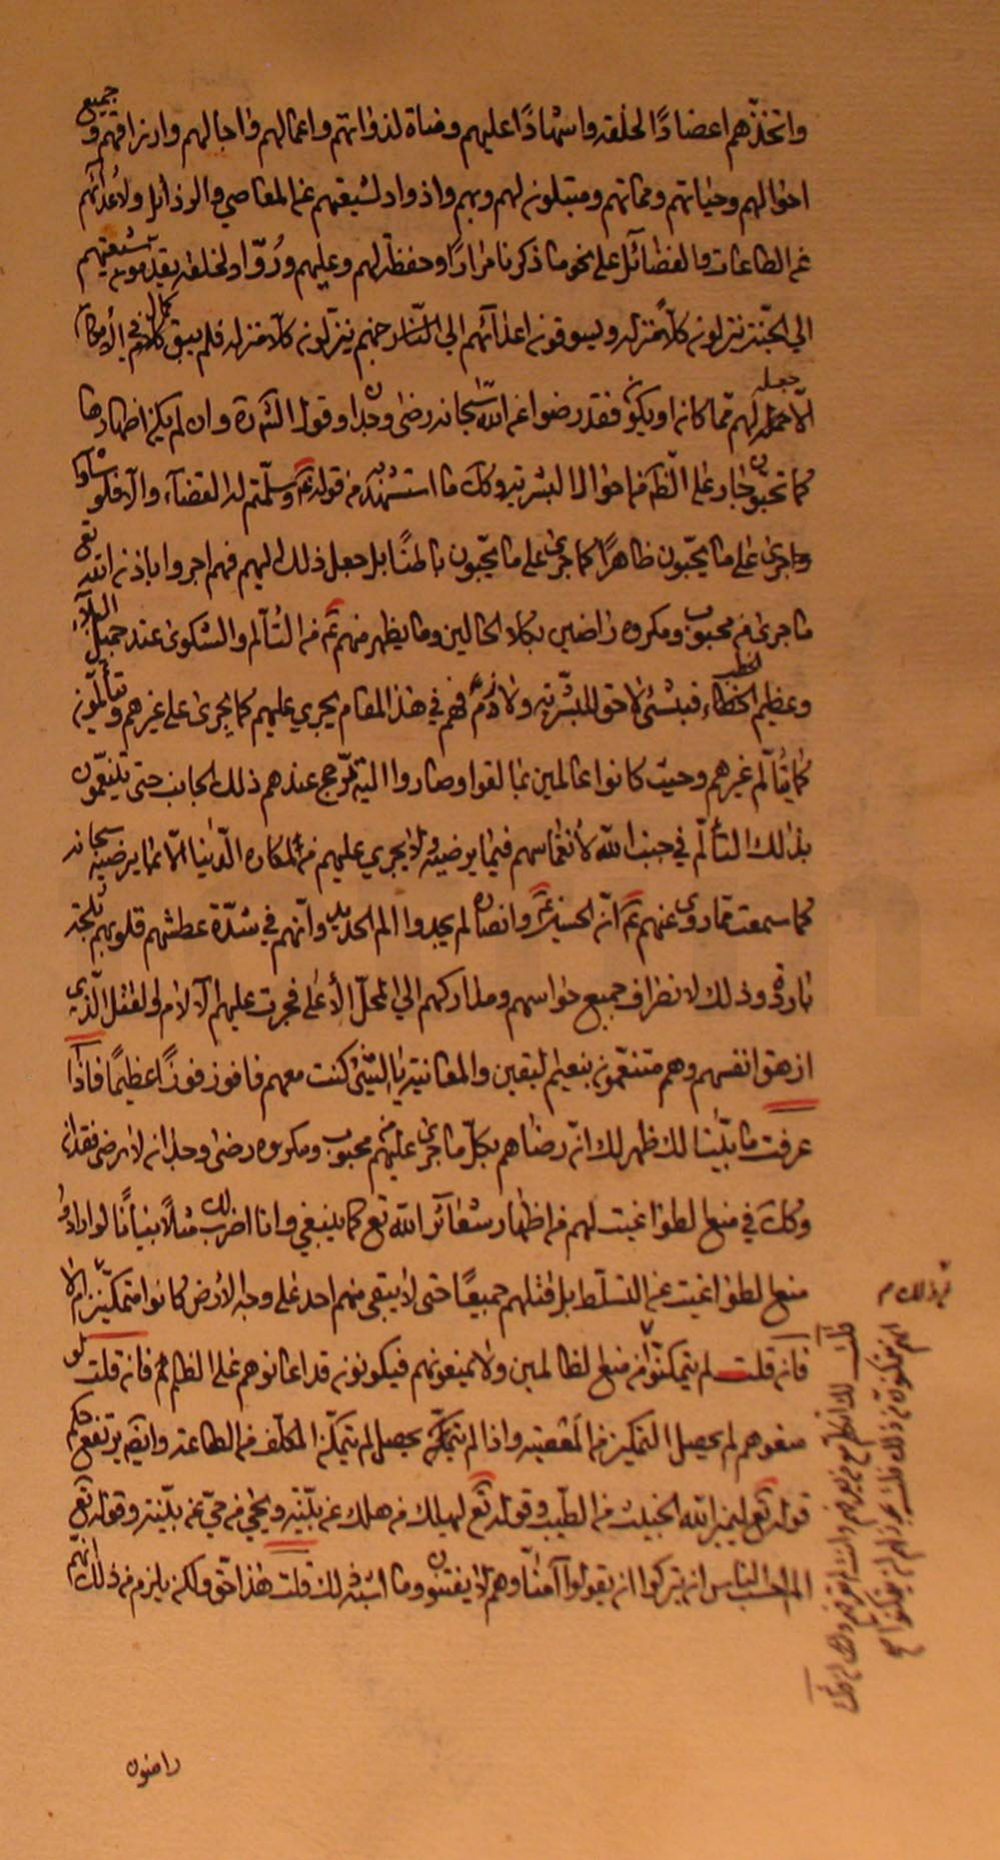 واتخذهم اعضادًا لخلقه واشهادًا عليهم ومناة لذواتهم واعمالهم واجالهم وارزاقهم وجميع
احوالهم وحياتهم ومماتهم ومتبلون لهم وبهم واذواد لشيعتهم عن المعاصي والرذائل ولاعدائهم
عن الطاعات والفضائل على نحو ما ذكرنا مرارًا وحفظة لهم وعليهم وروّاد لخلقه يقدمون شيعتهم
الى الجنة ينزلونه كلا منزله ويسوقون اعدائهم الى النار جهنم ينزلونه كلا منزله فلم يبق كمال في الامكان
الا جعله لهم مما كان او يكون فقد رضوا عن الله سبحانه رضى وجدان وقول القدرة وان لم يكن اظهارها
كما تحبون جار على الظاهر احوال البشرية وكل ما استشهد به من قوله ع وسلمتم له القضاء والا فلو شاؤا
واجرى على ما يحبون ظاهرًا كما جرى على ما يحبون باطنًا بل جعل ذلك اليهم فهم اجروا باذن الله تعالى
ما جرى من محبوب ومكروه راضين بكلا الحالين وما يظهر منهم ع من التألم والشكوى عند جميل البلاء
وعظيم الخطر فبشئ لاحق للبشرية ولازم فهم في هذا المقام يجري عليهم كما يجرى على غيرهم ويتألمون
كما يتألم غيرهم وحيث كانوا عالمين بما لقوا وصاروا اليه ترجح عندهم ذلك الجانب حتى يتنعمون
بذلك التألم في جنب الله لانغماسهم فيما يرضيه ولا يجري عليهم من مكاره الدنيا الا ما يرضيه سبحانه
كما سمعت مما روى عنهم ع ان الحسين ع وانصاره لم يجدوا الم الحديد وانهم في شدة عطشهم قلوبهم ثلجة
باردة وذلك لانصراف جميع حواسهم ومداركهم الى المحل الأعلى فجرت عليهم الآلام والقتل الذى
ازهق انفسهم وهم متنعمون بنعيم اليقين والمعاينة يا ليتني كنت معهم فافوز فوزًا عظيمًا فاذا
عرفت ما بينا لك ظهر لك ان رضاهم بكل ما جرى عليهم من محبوب ومكروه رضى وجدان لا رضى فقدان
وكذلك في منع الطواغيت لهم من اظهار شعائر الله تع كما ينبغي وانا اضرب لك مثلا بيانًا لو ارادوا
منع الطواغيت عن التسلط بل قتلهم جميعًا حتى لا يبقى منهم احد على وجه الأرض كانوا متمكنين ام لا
فان قلت لم يتمكنوا من منع الظالمين ولا يمنعونهم فيكونون قد اعانوهم على الظلم فان قلت لو
منعوهم لم يحصل التمكين من المعصية واذا لم يتمكن يحصل لم يتمكن المكلف من الطاعة وايضا يرتفع حكم
قوله تع ليميز الله الخبيث من الطيب وقوله تع ليهلك من هلك عن بينة ويحيى من حي عن بينة وقوله تع
الم احسب الناس ان يتركوا ان يقولوا آمنا وهم لا يفتنون وما اشبه ذلك قلت هذا حق ولكن يلزم من ذلك انهم
راضون